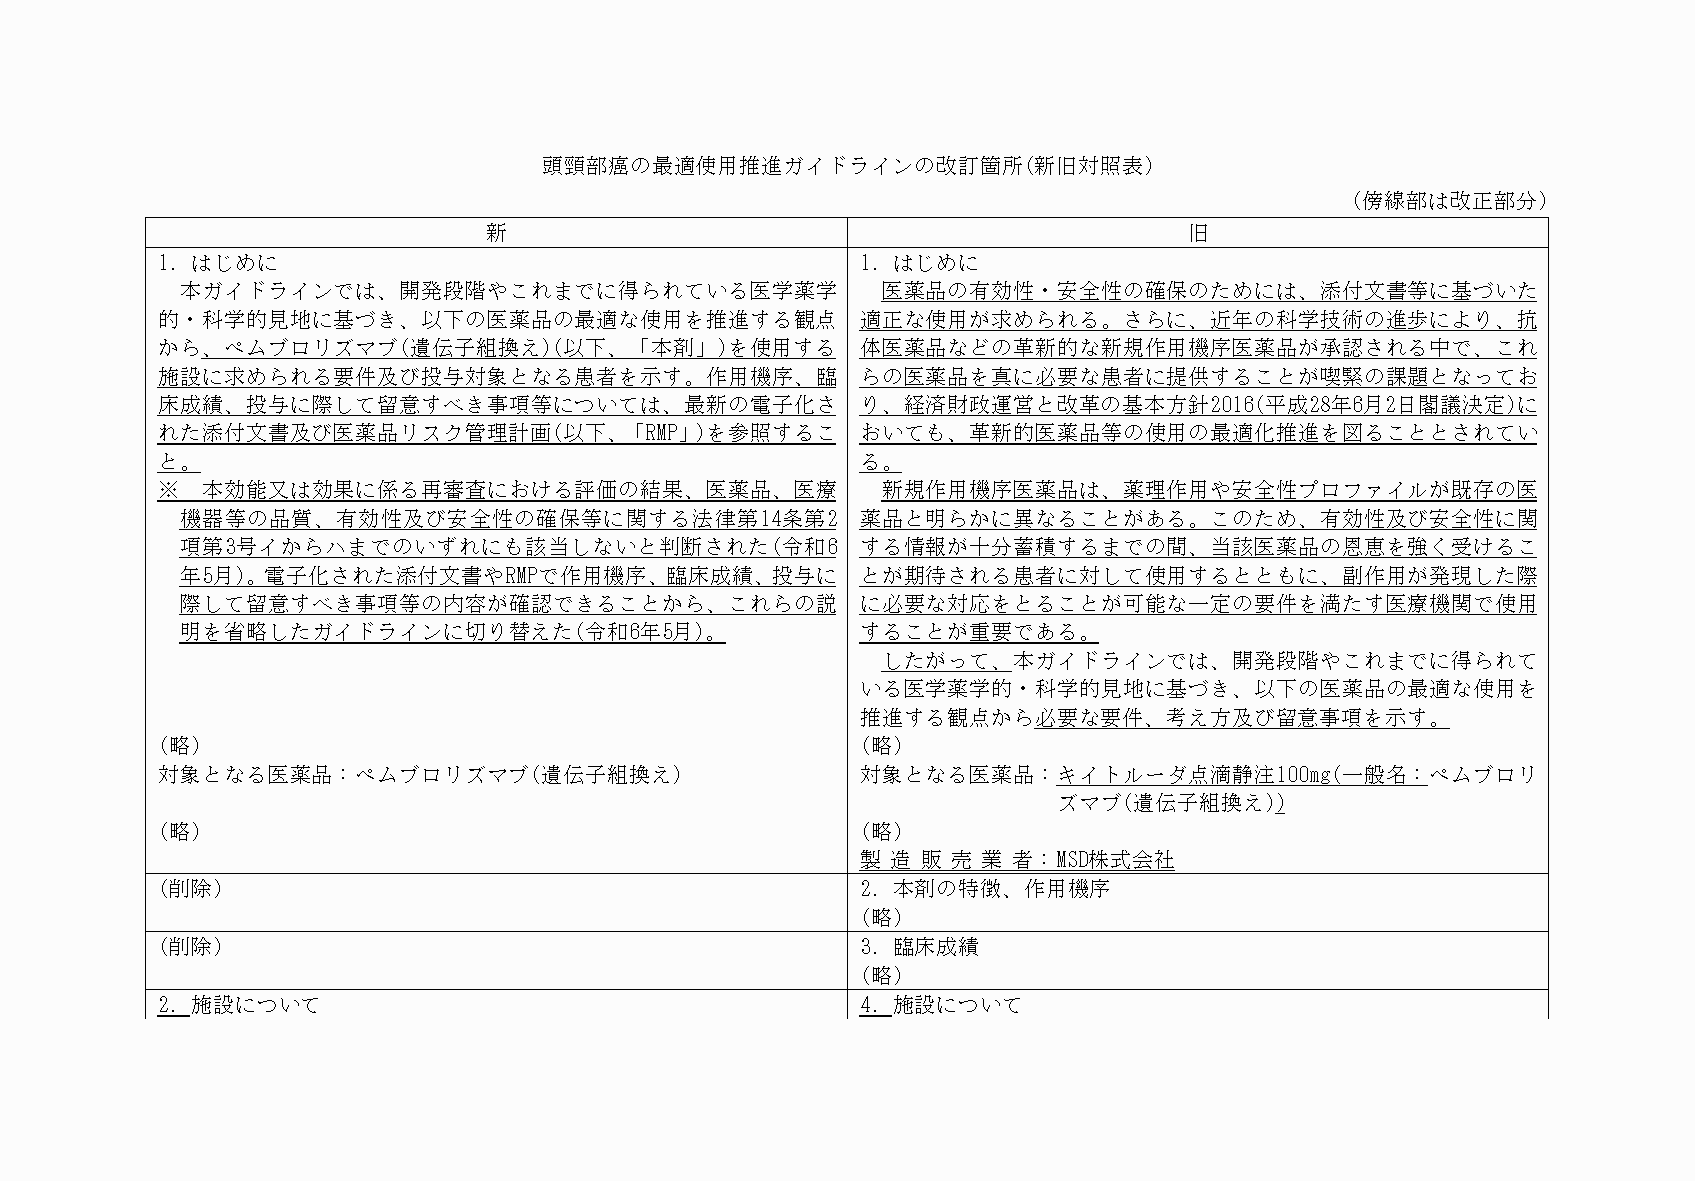 頭頸部癌の最適使用推進ガイドラインの改訂箇所(新旧対照表)
(傍線部は改正部分)
新
1. はじめに
本ガイドラインでは、開発段階やこれまでに得られている医学薬学
的・科学的見地に基づき、以下の医薬品の最適な使用を推進する観点
から、ペムブロリズマブ(遺伝子組換え)(以下、「本剤」)を使用する
施設に求められる要件及び投与対象となる患者を示す。作用機序、臨
床成績、投与に際して留意すべき事項等については、最新の電子化さ
れた添付文書及び医薬品リスク管理計画(以下、「RMP」)を参照するこ
と。
※ 本効能又は効果に係る再審査における評価の結果、医薬品、医療
機器等の品質、有効性及び安全性の確保等に関する法律第14条第2
項第3号イからハまでのいずれにも該当しないと判断された(令和6
年5月)。電子化された添付文書やRMPで作用機序、臨床成績、投与に
際して留意すべき事項等の内容が確認できることから、これらの説
明を省略したガイドラインに切り替えた(令和6年5月)。
(略)
対象となる医薬品：ペムブロリズマブ(遺伝子組換え)
(略)
旧
1. はじめに
医薬品の有効性・安全性の確保のためには、添付文書等に基づいた
適正な使用が求められる。さらに、近年の科学技術の進歩により、抗
体医薬品などの革新的な新規作用機序医薬品が承認される中で、これ
らの医薬品を真に必要な患者に提供することが喫緊の課題となってお
り、経済財政運営と改革の基本方針2016(平成28年6月2日閣議決定)に
おいても、革新的医薬品等の使用の最適化推進を図ることとされてい
る。
新規作用機序医薬品は、薬理作用や安全性プロファイルが既存の医
薬品と明らかに異なることがある。このため、有効性及び安全性に関
する情報が十分蓄積するまでの間、当該医薬品の恩恵を強く受けるこ
とが期待される患者に対して使用するとともに、副作用が発現した際
に必要な対応をとることが可能な一定の要件を満たす医療機関で使用
することが重要である。
したがって、本ガイドラインでは、開発段階やこれまでに得られて
いる医学薬学的・科学的見地に基づき、以下の医薬品の最適な使用を
推進する観点から必要な要件、考え方及び留意事項を示す。
(略)
対象となる医薬品：キイトルーダ点滴静注100mg(一般名：ペムブロリ
ズマブ(遺伝子組換え))
(略)
製造販売業者：MSD株式会社
(削除)
2. 本剤の特徴、作用機序
(略)
(削除)
3. 臨床成績
(略)
2. 施設について
4. 施設について